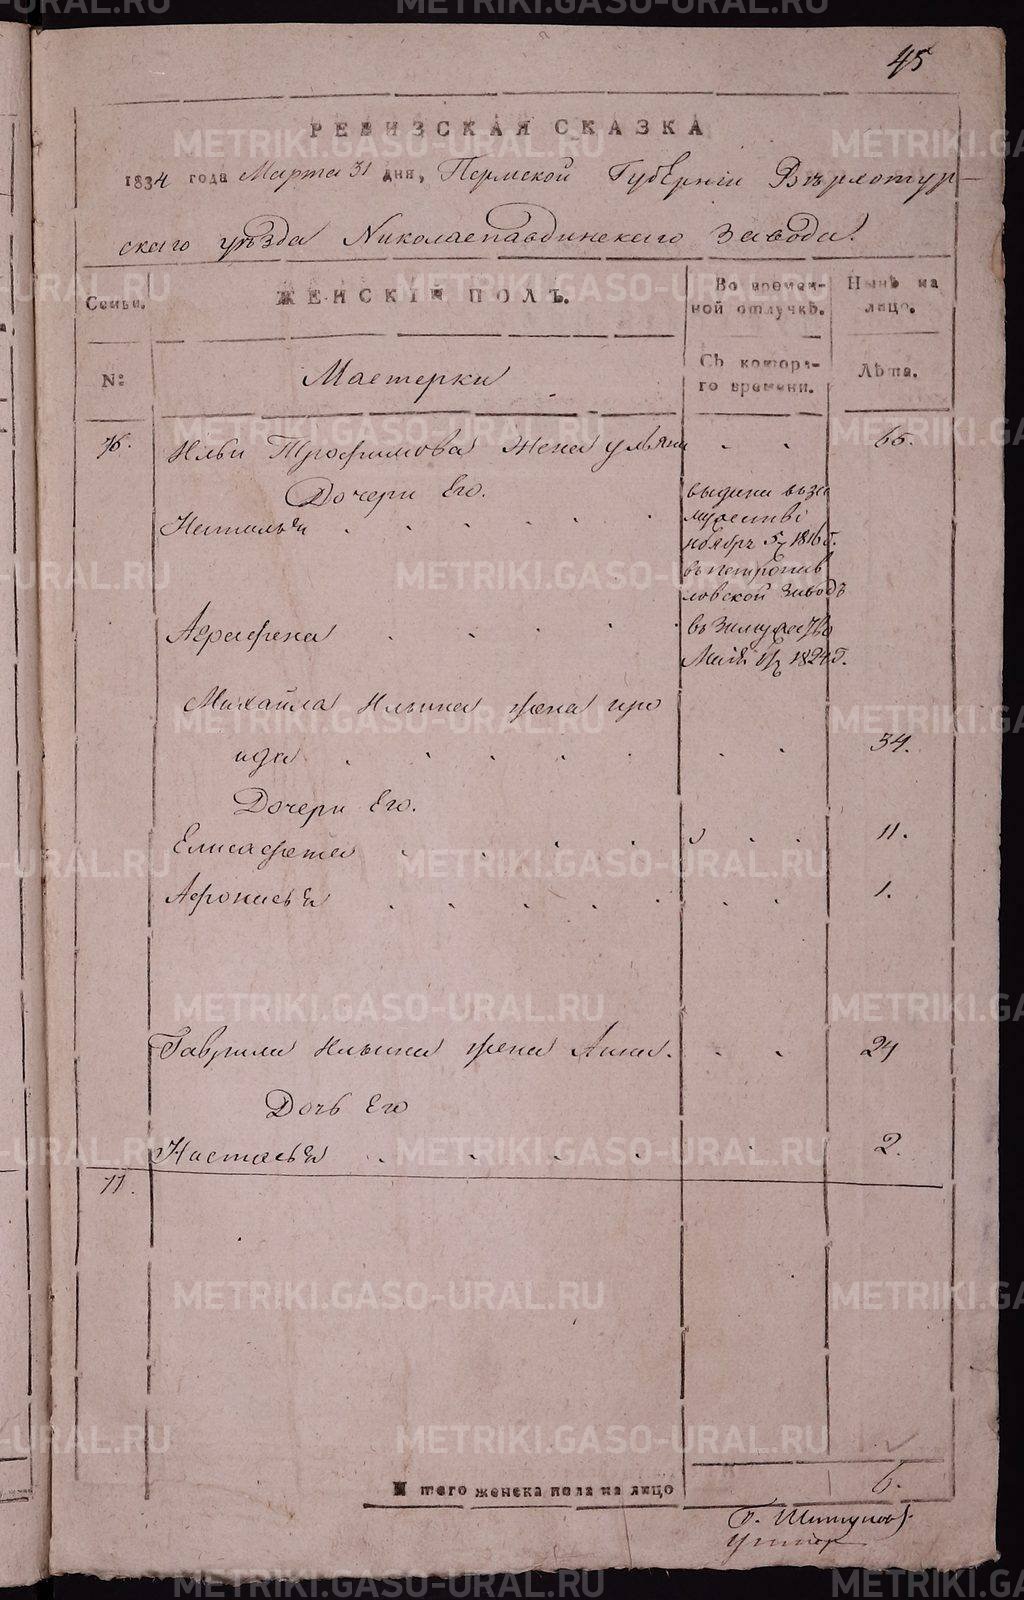 45
РЕВИЗСКАЯ СКАЗКА
1834 года Марта 31 дня, Пермской Губерніи Верхотур-
скаго уѣзда Николаепавдинскаго Завода.
Семьи. ЖЕНСКІЙ ПОЛЪ. Во времен- Нынѣ на
ной отлучкѣ. лицо.
№: Мастерки Съ котора- Лѣта.
го времени.
76. Ильи Трофимова жена Ульяна 65.
Дочери Его. выдана въза
Наталья мужестві
ноябрь 5 1816 г.
въ петропав
ловской заводъ
Аграфена въ замужество
1824 г.
Михайла Ильина жена ири
ида 34.
Дочери Его.
Елисафета 11.
Афонасья 1.
Гаврила Ильина жена Анна. 24
Дочь Его
Настасья 2.
77.
Итого женска пола на лицо 6.
METRIKI.GASO-URAL.RU